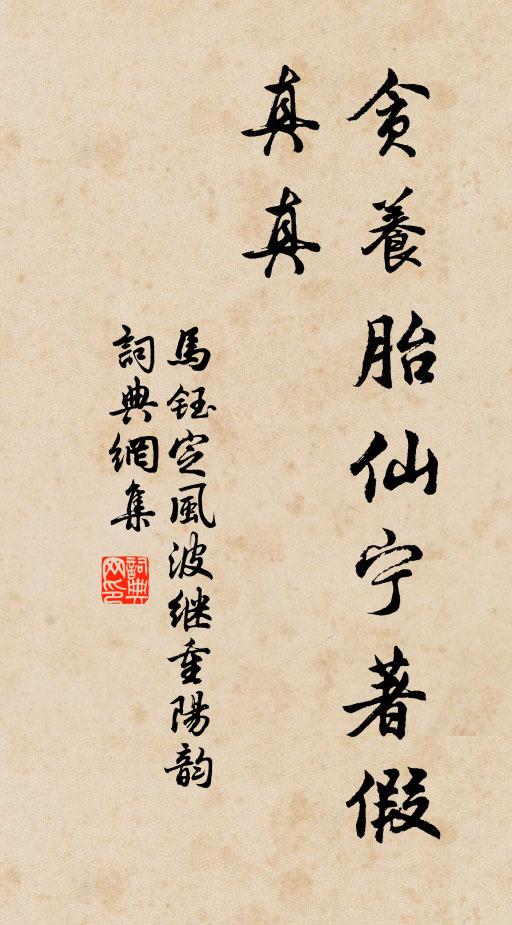 贪養胎仙宁著假
真真
馬鈺定風波继重陽韵
詞典網集
詞典网印